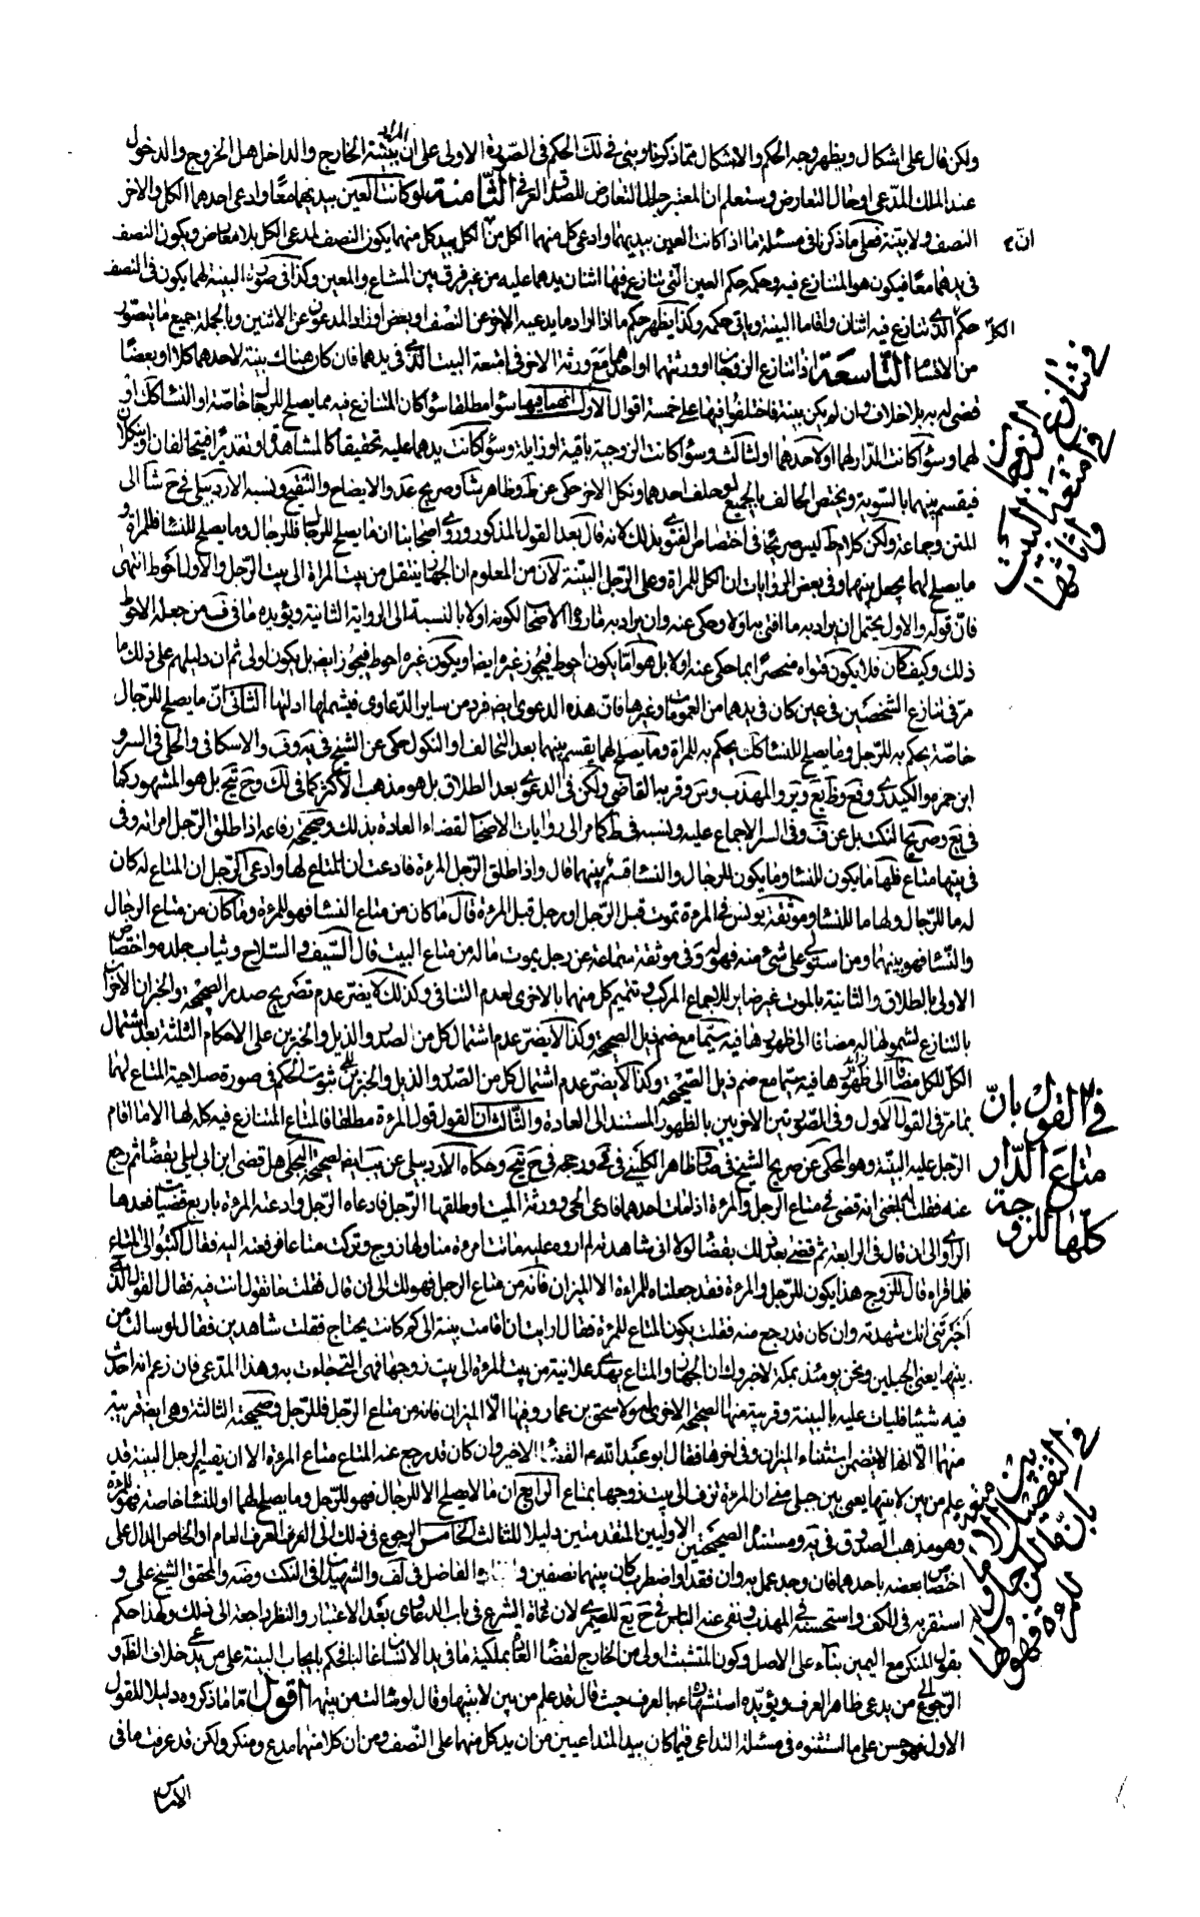 ولكن قال على اشكال ويظهر وجه الحكم والاشكال مما ذكرنا وبنى فى لك الحكم فى الصورة الاولى على ان المراد ببينة الخارج والداخل هل الخروج والدخول
عند الملك المدعى او حال التعارض وستعلم ان المعتبر حال التعارض للصدق العرفى الثامنة لو كانت العين بيديهما معا وادعى احدهما الكل والاخر
النصف ولا بينة فعلى ما ذكرنا فى مسئلة ما اذا كانت العين بيديهما وادعى كل منهما الكل من ان الكل بيد كل منهما يكون النصف لمدعى الكل بلا معارض ويكون النصف
فى يدهما معا فيكون هو المتنازع فيه وحكمه حكم العين التى يتنازع فيها اثنان يدهما عليه من غير فرق بين المشاع والمعين وكذا فى صورة البينة لهما يكون فى النصف
حكم الكل الذى تنازع فيه اثنان واقاما البينة وياتى حكمه وكذا يظهر حكم ما اذا زاد ما يدعيه الاخر عن النصف او نقص او زاد المدعون عن الاثنين وبالجملة جميع ما يتصور
من الاقسام التاسعة اذا تنازع الزوجان او ورثتهما او احدهما مع ورثة الاخر فى امتعة البيت الذى فى يدهما فان كان هناك بينة لاحدهما كلا او بعضا
قضى له به بلا خلاف وان لم يكن بينة فاختلفوا فيها على خمسة اقوال الاول انهما فيها سواء مطلقا سواء كان المتنازع فيه مما يصلح للرجال خاصة او النساء كك او
لهما وسواء كانت الدار لهما او لاحدهما او لثالث وسواء كانت الزوجية باقية او زايلة وسواء كانت يدهما عليه تحقيقا كالمشاهدة او تقديرا فيتحالفان او ينكلان
فيقسم بينهما بالسوية ويختص الحالف بالجميع لو حلف احدهما ونكل الاخر حكى عن ط وظاهر شا وصريح عد والايضاح والتنقيح ونسبه الاردبيلى فى ح شا الى
المتن وجماعة ولكن كلام ط ليس صريحا فى اختصاص الفتوى بذلك لانه قال بعد القول المذكور وروى اصحابنا ان ما يصلح للرجال فللرجال وما يصلح للنساء فللمراة و
ما يصلح لهما يجعل بينهما وفى بعض الروايات ان الكل للمراة وعلى الرجل البينة لان من المعلوم ان الجهاز ينتقل من بيت المراة الى بيت الرجل والاول احوط انتهى
فان قوله والاول يحتمل ان يراد به ما افتى به اولا وحكى عنه وان يراد به ما رواه الاصحاب لكونه اولا بالنسبة الى الرواية الثانية ويؤيده ما فى ف من جعله الاحوط
ذلك وكيف كان فلا يكون فتواه منحصرا بما حكى عنه اولا بل هو اما يكون احوط فيجوز غيره ايضا او يكون غيره احوط فيجوز ايضا بل يكون اولى ثم ان دليلهم على ذلك ما
مر فى تنازع الشخصين فى عين كان فى يدهما من العمومات وغيرها فان هذه الدعوى ايضا فرد من ساير الدعاوى فيشملها ادلتها الثانى ان ما يصلح للرجال
خاصة يحكم به للرجل وما يصلح للنساء كك يحكم به للمراة وما يصلح لهما يقسم بينهما بعد التحالف او النكول حكى عن الشيخ فى يه وف والاسكافى والحلى فى السر و
ابن حمزه والكيدرى وفع وظ يع وير والمهذب وس وقر به القاضى ولكن فى الدعوى بعد الطلاق بل هو مذهب الاكثر كما فى لك وح يج بل هو المشهور كما
فى يج وصريح النكت بل عن ف وفى السر الاجماع عليه ونسبه فى ط كما مر الى روايات الاصحاب لقضاء العادة بذلك وصحيحة رفاعه اذا طلق الرجل امراته وفى
فى بيتها متاع فلها ما يكون للنساء وما يكون للرجال والنساء قسم بينهما قال واذا طلق الرجل المرءة فادعت ان المتاع لها وادعى الرجل ان المتاع له كان
له ما للرجال ولها ما للنساء وموثقة يونس فى المرءة تموت قبل الرجل او رجل قبل المرءة قال ما كان من متاع النساء فهو للمرءة وما كان من متاع الرجال
والنساء فهو بينهما ومن استولى على شئ منه فهو له وفى موثقة سماعة عن رجل يموت ما له من متاع البيت قال السيف والسلاح وثياب جلده واختصاص
الاولى بالطلاق والثانية بالموت غير ضاير للاجماع المركب وتتميم كل منهما بالاخرى لعدم التنافى وكذلك لا يضر عدم تصريح صدر الصحيحة والخبران الاخران
بالتنازع لشمولها له مضافا الى ظهورها فيه سيما مع ضم ذيل الصحيحة وكذا لا يضر عدم اشتمال كل من الصدر والذيل والخبرين على الاحكام الثلثة بعد اشتمال
الكل للكل مضافا الى ظهورها فيه سيما مع ضم ذيل الصحيحة وكذا لا يضر عدم اشتمال كل من الصدر والذيل والخبرين ثبوت الحكم فى صورة صلاحية المتاع لهما
بما مر فى القول الاول وفى الصورتين الاخريين بالظهور المستند الى العادة والثالث ان القول قول المرءة مطلقا فالمتاع المتنازع فيه كله لها الا ما اقام
الرجل عليه البينة وهو المحكى عن صريح الشيخ فى صا وظاهر الكلينى فى فى ورجحه فى ح يج وحكاه الاردبيلى عن يب ايضا لصحيحة البجلى هل قضى ابن ابى ليلى بقضاء ثم رجع
عنه فقلت له بلغنى انه قضى فى متاع الرجل والمرءة اذا مات احدهما فادعى الحى وورثة الميت او طلقها الرجل فادعاه الرجل وادعته المرءة باربع قضيات فعدها
الراوى الى ان قال فى الرابعة ثم قضى بعد ذلك بقضاء لولا انى شاهدته لم اروه عليه ماتت امرءة منا ولها زوج وتركت متاعا فرفعته اليه فقال اكتبوا لى المتاع
فلما قراه قال للزوج هذا يكون للرجل والمرءة فقد جعلناه للمراءة الا الميزان فانه من متاع الرجل فهو لك الى ان قال فقلت ما تقول انت فيه فقال القول الذى
اخبرتنى انك شهدته وان كان قد رجع منه فقلت يكون المتاع للمرءة فقال ارايت ان اقامت بينة الى كم كانت يحتاج فقلت شاهدين فقال لو سالت من
بينهما يعنى الجبلين ونحن يومئذ بمكة لاخبروك ان الجهاز والمتاع يهدى علانية من بيت المرءة الى بيت زوجها فهى التى جاءت به وهذا المدعى فان زعم انه احدث
فيه شيئا فليات عليه بالبينة وقريبة منها الصحيحة الاخرى له ولاسحق بن عمار وفيها الا الميزان فانه من متاع الرجل فللرجل وصحيحته الثالثة وهى ايضا قريبة
منهما الا انها لا يتضمن استثناء الميزان وفى اخرها فقال ابو عبد الله ع القضاء الاخير وان كان قد رجع عنه المتاع متاع المرءة الا ان يقيم الرجل البينة قد
علم من بين لابتيها يعنى بين جبلى منى ان المرءة تزف الى بيت زوجها بمتاع الرابع ان ما لا يصلح الا للرجال فهو للرجل وما يصلح لهما او للنساء خاصة فهو للمرءة
وهو مذهب الصدوق فى يه ومستنده الصحيحتين الاوليين المتقدمتين دليلا للثالث الخامس الرجوع فى ذلك الى العرف العام او الخاص الدال على
اختصاص بعضه باحدهما فان وجد عمل به وان فقد او اضطرب كان بينهما نصفين والفاضل فى لف والشهيدان فى النكت وضه والمحقق الشيخ على و
استقر به فى الكف واستحسنه فى المهذب ونفى عنه الباس فى ح يع للصيمرى لان عادة الشرع فى باب الدعاوى بعد الاعتبار والنظر راجعه الى ذلك ولهذا حكم
بقول المنكر مع اليمين بناء على الاصل وكون المتشبث اولى من الخارج لقضاء العادة بملكية ما فى يد الانسان غالبا فحكم بايجاب البينة على من يدعى خلاف الظاهر و
الرجوع الى من يدعى ظاهر العرف ويؤيده استشهاده ع بالعرف حيث قال قد علم من بين لابتيها وقال لو سالت من بينهما اقول اما ما ذكروه دليلا للقول
الاول فهو حسن على ما استثنوه فى مسئلة التداعى فيما كان بيد المتداعيين من ان يد كل منهما على النصف ومن ان كلا منهما مدع ومنكر ولكن قد عرفت ما فى
فى تنازع الزوجان
فى امتعة البيت
واثاثها
فى القول بان
متاع الدار
كلها للزوجة